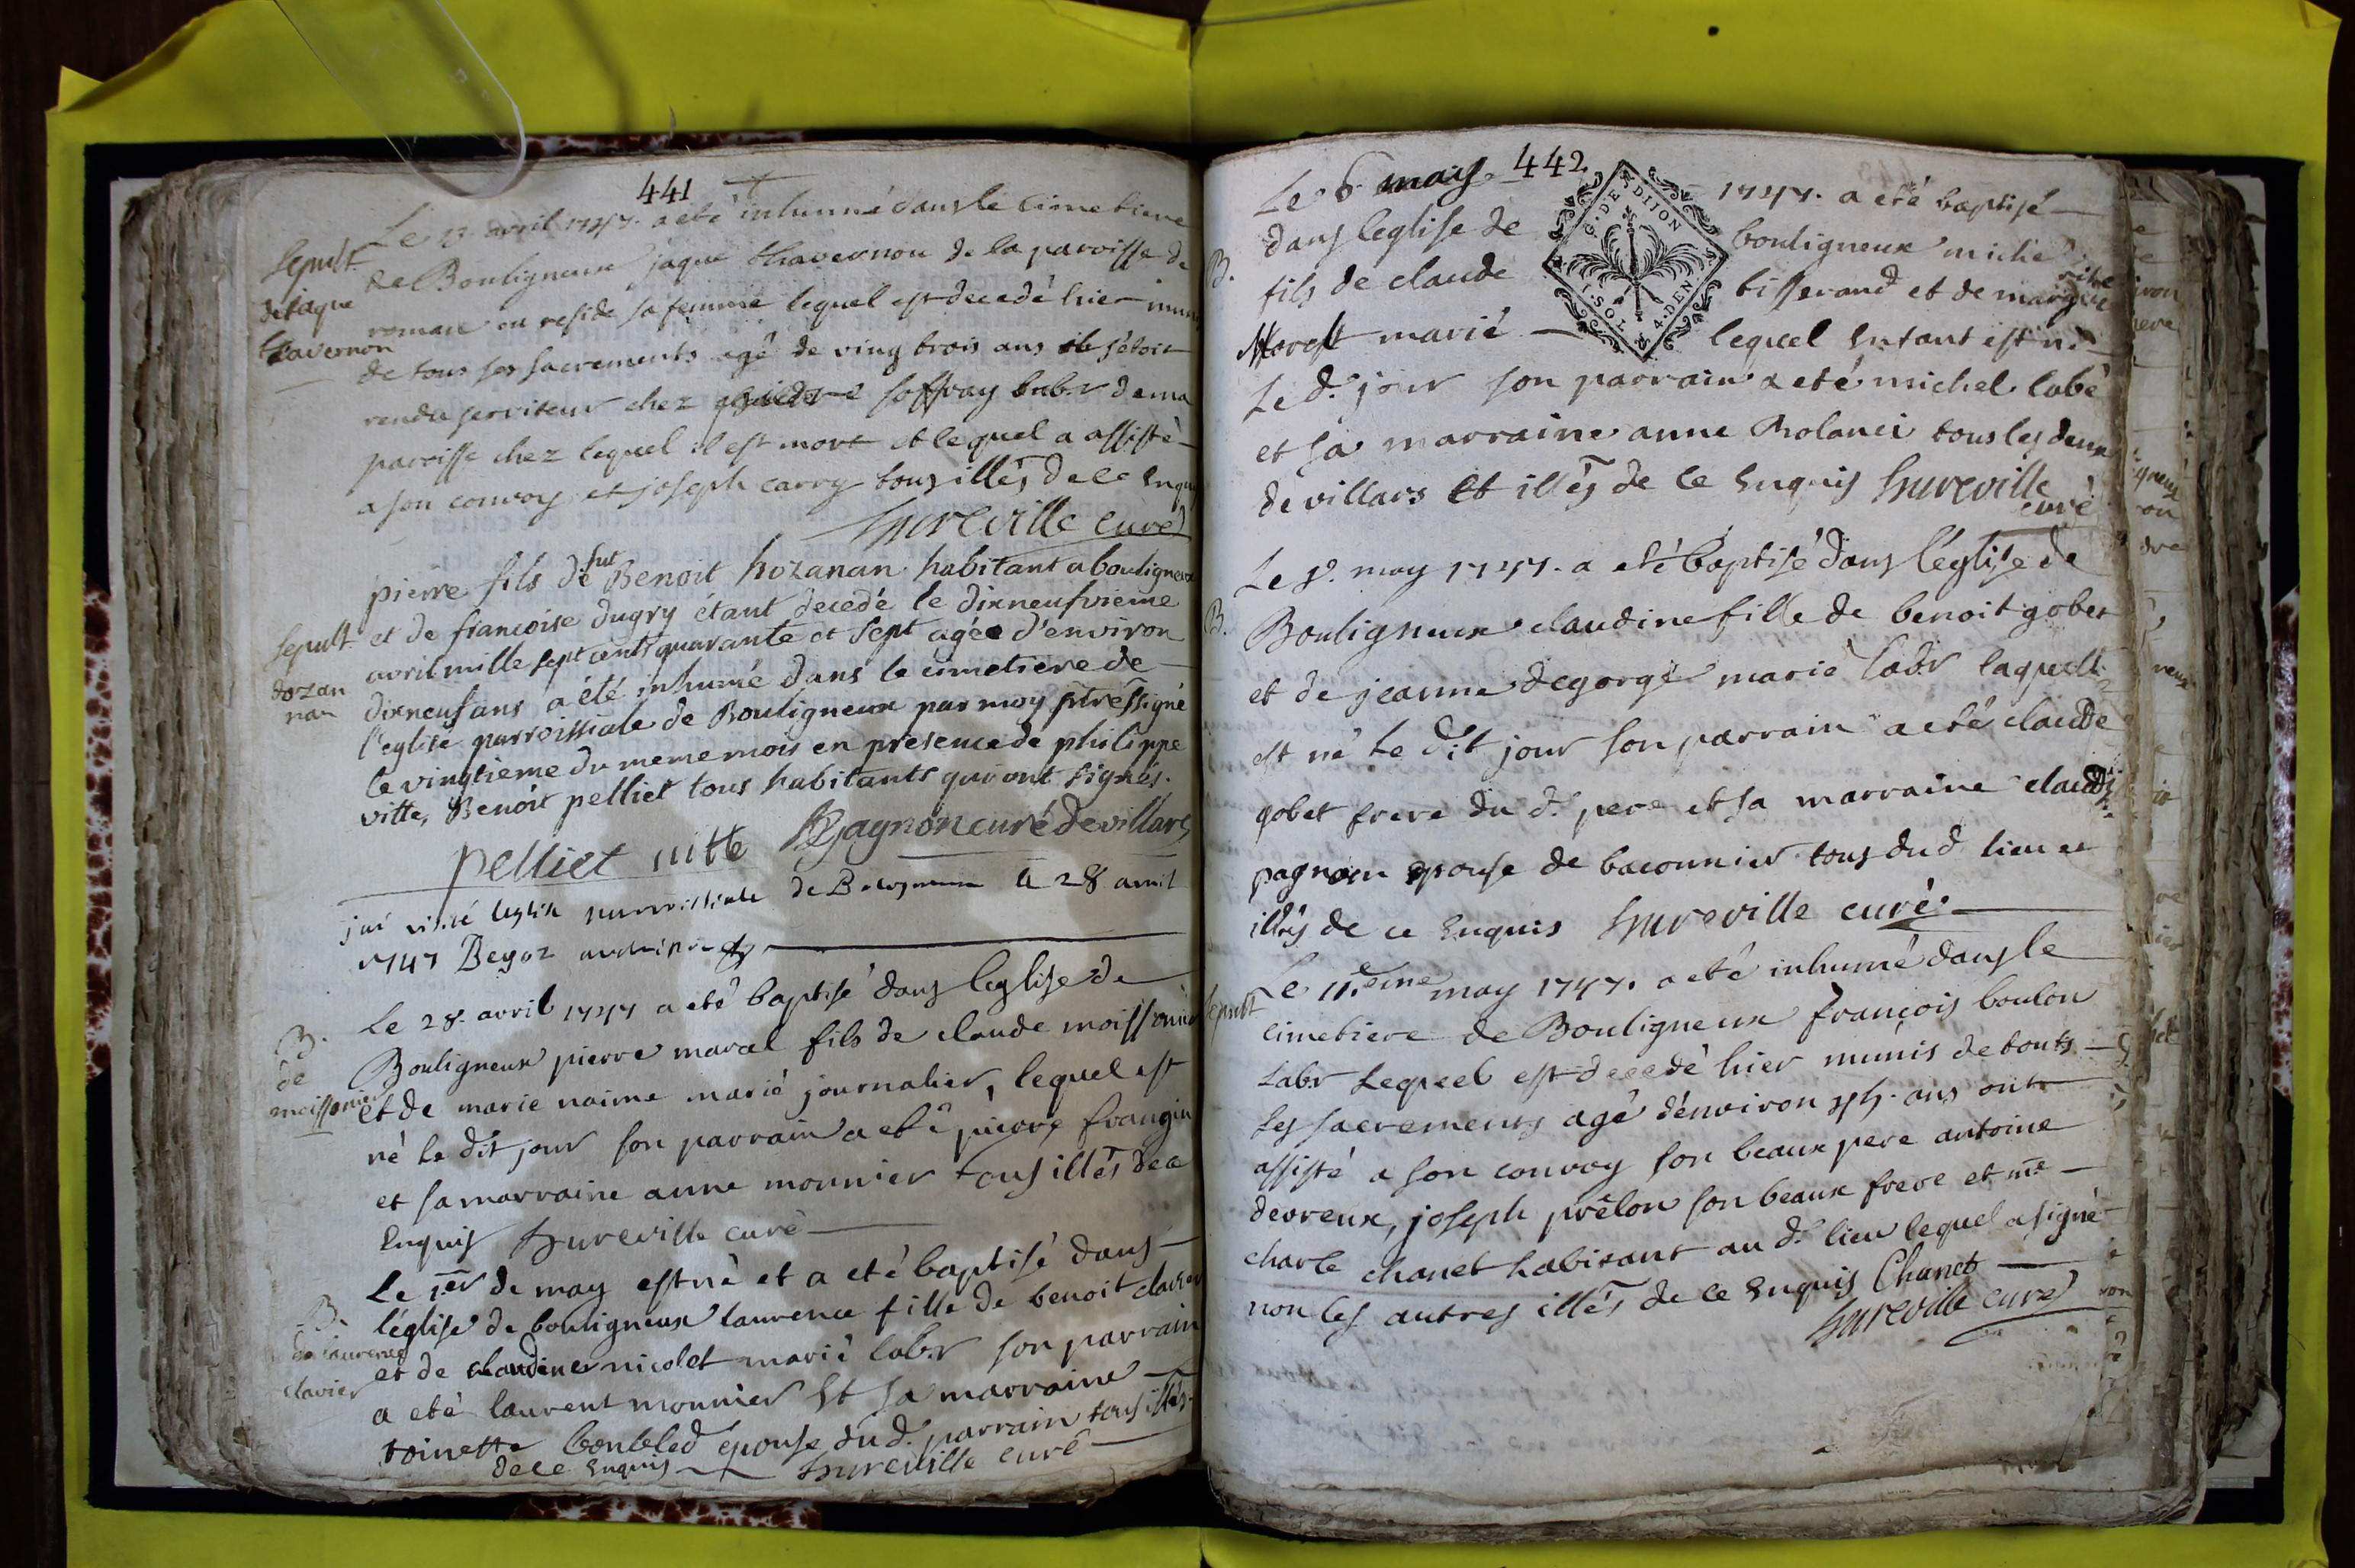 441
Le avril 1747. a eté inhumé dans le cimetiere
Sepult.
de Bouligneux jaque thavernon de la paroisse de
de Jaque
romane ou reside sa femme lequel est decedé hier muni
thavernon
de tous ses sacrements agé de ving trois ans il s'étoit
rendu serviteur chez soffray labr de ma
paroisse chez lequel il est mort et lequel a assisté
a son convoy et joseph carry tous illés de ce enquis
hureville curé
pierre fils de fut Benoit hozanan habitant a bouligneux
Sepult.
et de francoise dugry étant decedé le dixneufvieme
dozan
nan
avril mille sept cents quarante et sept agée d'environ
dixneuf ans a été inhumé dans le cimetiere de
l'eglise parroissiale de Bouligneux par moy soussigné
le vingtieme du meme mois en presence de philippe
vitte, Benoit pelliet tous habitants qui ont signés.
pelliet vitte Gagnon curé de villars
j'ai visité leglise parroissiale de Bouligneux le 28 avril
1747 Begoz archiprêtre
B.
de
moissonnier
Le 28. avril 1747 a eté baptisé dans leglise de
Bouligneux pierre marcel fils de claude moissonnier
et de marie naime marié journalier, lequel est
né le dit jour son parrain a eté pierre frangin
et sa marraine anne monnier tous illés de ce
Enquis hureville curé
Le 1er de may est né et a eté baptisé dans
B.
de laurence
clavier
léglise de bouligneux laurence fille de benoit clavier
et de claudine nicolet marié labr son parrain
a eté laurent monnier Et sa marraine
toinette boulled epouse du d. parrain tous illés
de ce Enquis hureville curé
442
Le 6 may 1747. a eté baptisé
B.
dans leglise de bouligneux michel
fils de claude tisserand et de margueritte
Morest marié lequel Enfant est né
Le d. jour son parrain a eté michel labé
et sa marraine anne Rolanci tous les deux
de villars Et illés de ce Enquis hureville
curé
Le 8. may 1747. a eté baptisé dans léglise de
B.
Bouligneux claudine fille de benoit gobet
et de jeanne degorge marié labr laquelle
est né le dit jour son parrain a eté claude
gobet frere du d. pere et sa marraine claudine
pagnon epouse de baconnier tous du d. lieu et
illés de ce Enquis hureville curé
Le 11.eme may 1747. a eté inhumé dans le
Sepult
cimetiere de Bouligneux françois boulon
Labr Lequel est decedé hier munis de touts
Les sacrements agé d'environ ans ont
assisté a son convoy son beaux pere antoine
devreux, joseph prêlon son beaux frere et me
charle chanet habitant au d. lieu lequel a signé
non les autres illés de ce Enquis Chanet
hureville curé
G. DE DIJON
1. SOL 4. DEN